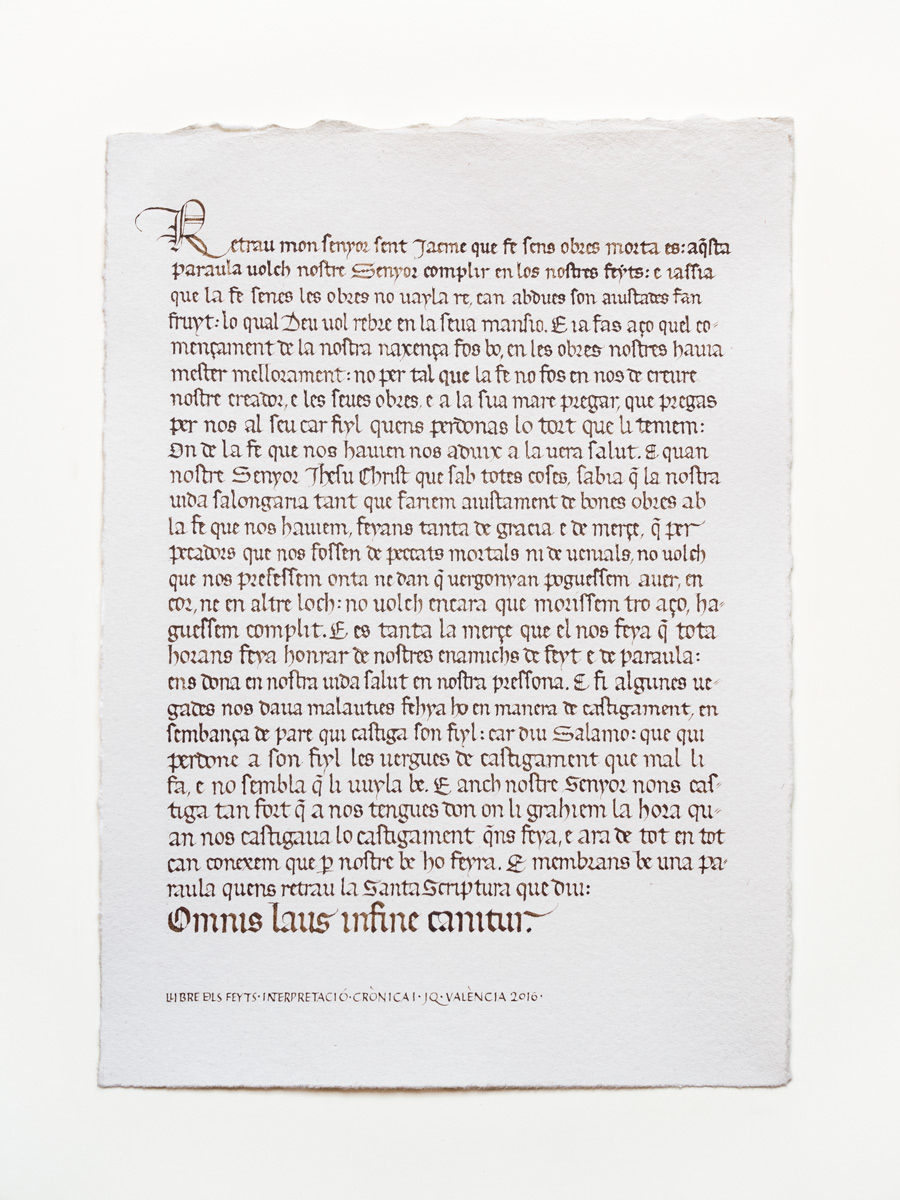 Retrau mon senyor sent Jacme que fe sens obres morta es: aq̃sta
paraula uolch nostre Senyor complir en los nostres feyts: e iassia
que la fe senes les obres no uayla re, can abdues son aiustades fan
fruyt: lo qual Deu uol rebre en la seua mansio. E ia fas aço quel co-
mençament de la nostra naxença fos bo, en les obres nostres hauia
mester mellorament: no per tal que la fe no fos en nos de creure
nostre creador, e les seues obres, e a la sua mare pregar, que pregas
per nos al seu car fiyl quens perdonas lo tort que li teniem:
On de la fe que nos hauien nos aduix a la uera salut. E quan
nostre Senyor Jhesu Christ que sab totes coses, sabia q̃ la nostra
uida salongaria tant que fariem aiustament de bones obres ab
la fe que nos hauiem, feyans tanta de gracia e de merçe, q̃ per
pecadors que nos fossen de peccats mortals ni de uenials, no uolch
que nos presessem onta ne dan q̃ uergonyan poguessem auer, en
cor, ne en altre loch: no uolch encara que morissem tro aço, ha-
guessem complit. E es tanta la merçe que el nos feya q̃ tota
horans feya honrar de nostres enamichs de feyt e de paraula:
ens dona en nostra uida salut en nostra pressona. E si algunes ue-
gades nos daua malauties fehya ho en manera de castigament, en
sembança de pare qui castiga son fiyl: car diu Salamo: que qui
perdone a son fiyl les uergues de castigament que mal li
fa, e no sembla q̃ li uuyla be. E anch nostre Senyor nons cas-
tiga tan fort q̃ a nos tengues don on li grahiem la hora qu-
an nos castigaua lo castigament q̃ns feya, e ara de tot en tot
can conexem que ꝑ nostre be ho feyra. E membrans be una pa-
raula quens retrau la Santa Scriptura que diu:
Omnis laus in fine canitur.
LLIBRE DELS FEYTS · INTERPRETACIÓ · CRÒNICA I · JQ · VALÈNCIA 2016 ·